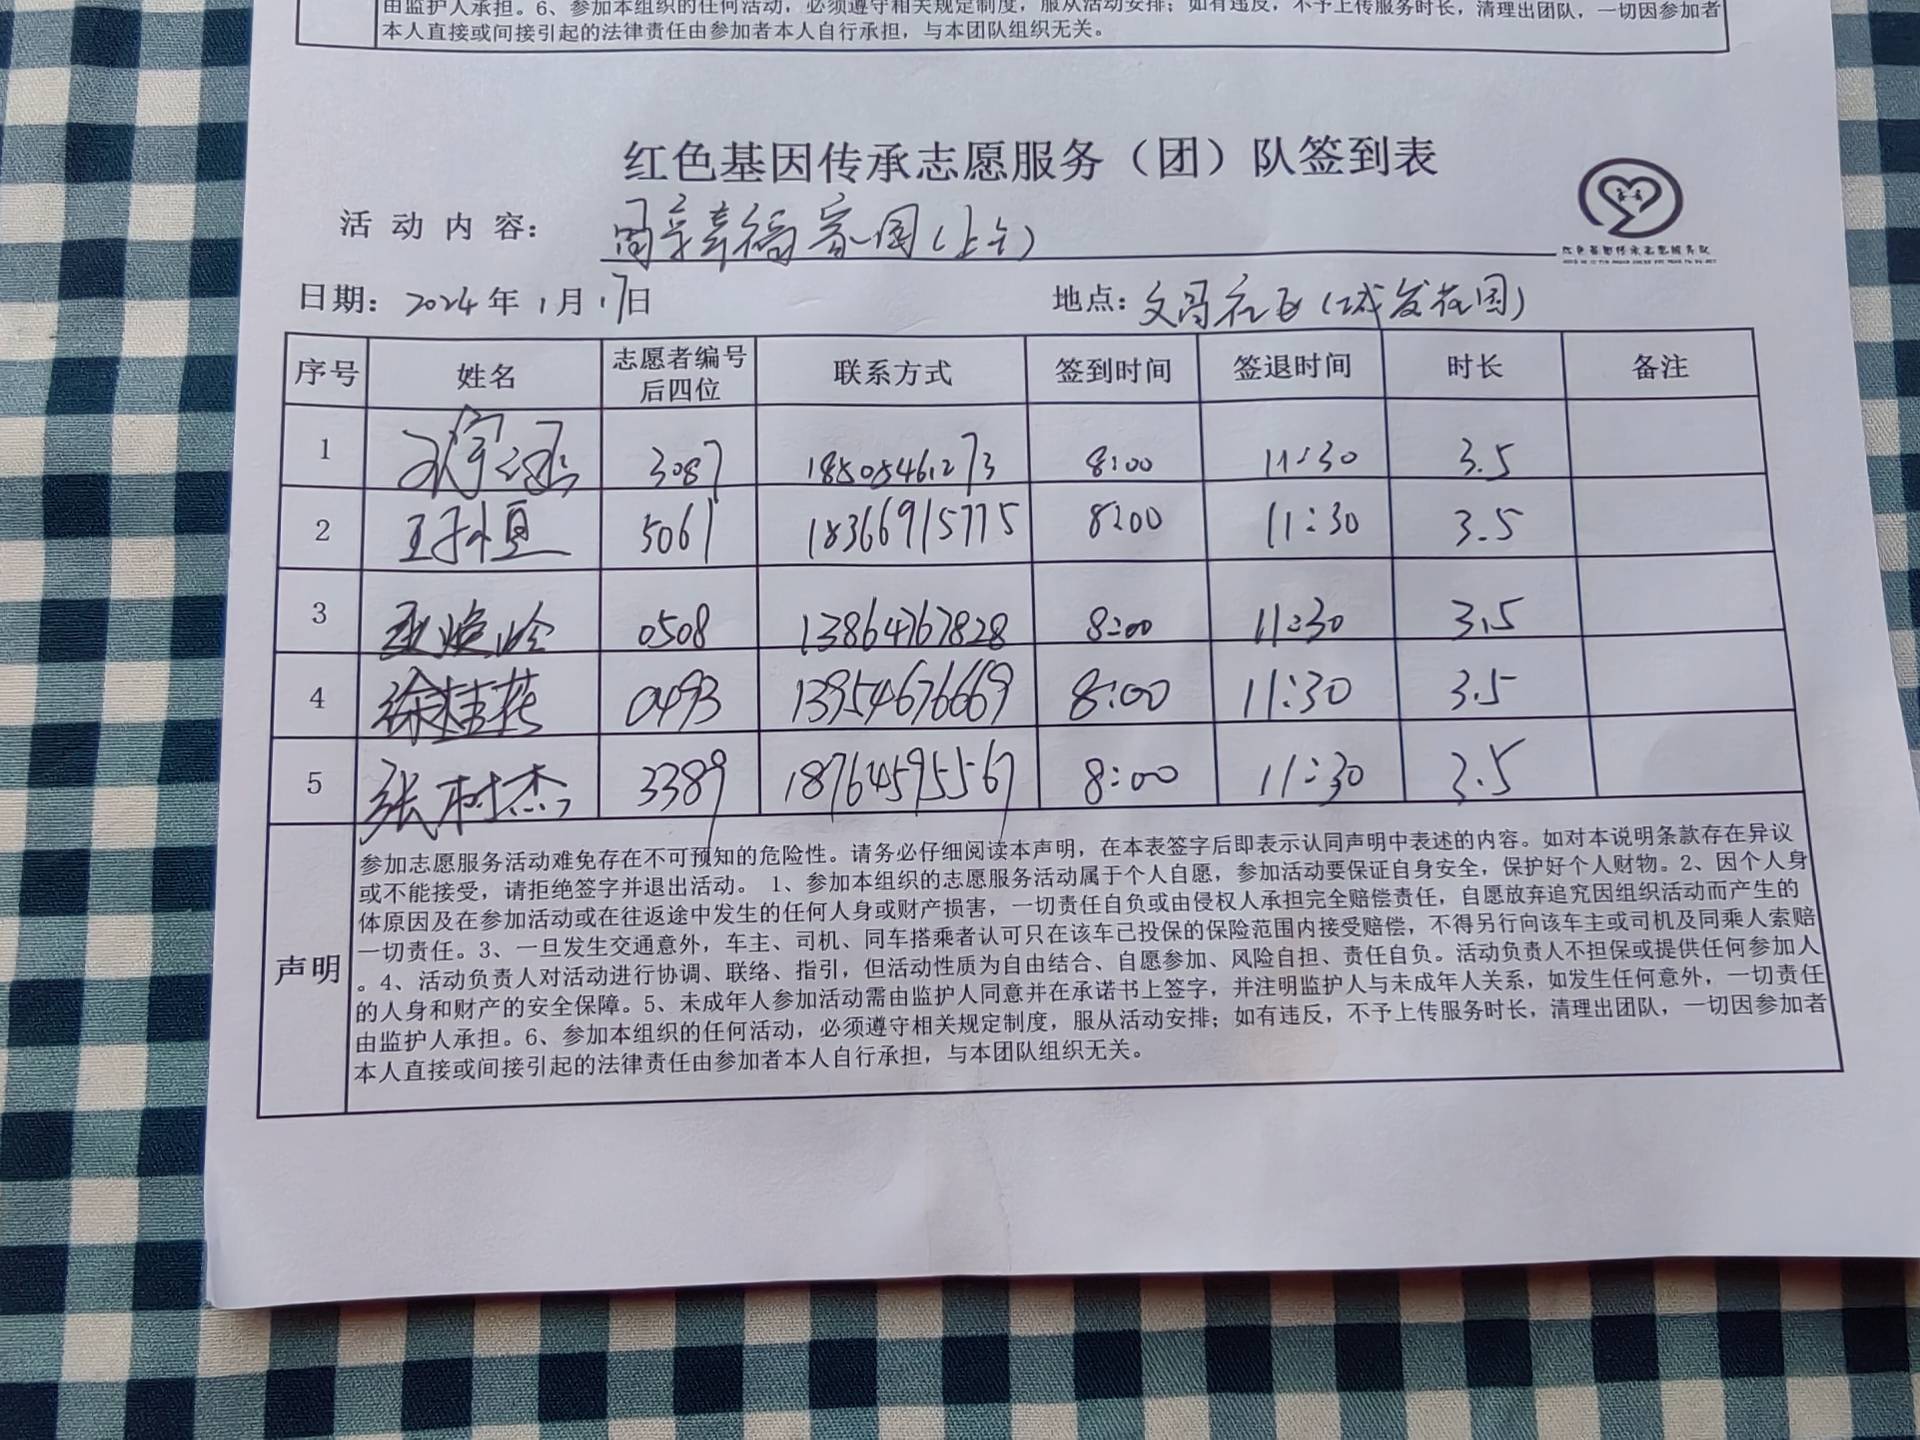 由监护人承担。6、参加本组织的任何活动，必须遵守相关规定制度，服从活动安排；如有违反，不予上传服务时长，清理出团队，一切因参加者
本人直接或间接引起的法律责任由参加者本人自行承担，与本团队组织无关。
红色基因传承志愿服务（团）队签到表
活动内容： 幸福家园(上午)
红色基因传承志愿服务队
日期：2024年1月17日 地点：文昌社区(城发花园)
序号 姓名 志愿者编号后四位 联系方式 签到时间 签退时间 时长 备注
1 3087 8:00 11:30 3.5
2 王子恒 5061 18366915775 8:00 11:30 3.5
3 0508 13864767828 8:00 11:30 3.5
4 徐桂花 0493 13954676669 8:00 11:30 3.5
5 张树杰 3389 18764595567 8:00 11:30 3.5
声明
参加志愿服务活动难免存在不可预知的危险性。请务必仔细阅读本声明，在本表签字后即表示认同声明中表述的内容。如对本说明条款存在异议
或不能接受，请拒绝签字并退出活动。 1、参加本组织的志愿服务活动属于个人自愿，参加活动要保证自身安全，保护好个人财物。2、因个人身
体原因及在参加活动或在往返途中发生的任何人身或财产损害，一切责任自负或由侵权人承担完全赔偿责任，自愿放弃追究因组织活动而产生的
一切责任。3、一旦发生交通意外，车主、司机、同车搭乘者认可只在该车已投保的保险范围内接受赔偿，不得另行向该车主或司机及同乘人索赔
。4、活动负责人对活动进行协调、联络、指引，但活动性质为自由结合、自愿参加、风险自担、责任自负。活动负责人不担保或提供任何参加人
的人身和财产的安全保障。5、未成年人参加活动需由监护人同意并在承诺书上签字，并注明监护人与未成年人关系，如发生任何意外，一切责任
由监护人承担。6、参加本组织的任何活动，必须遵守相关规定制度，服从活动安排；如有违反，不予上传服务时长，清理出团队，一切因参加者
本人直接或间接引起的法律责任由参加者本人自行承担，与本团队组织无关。